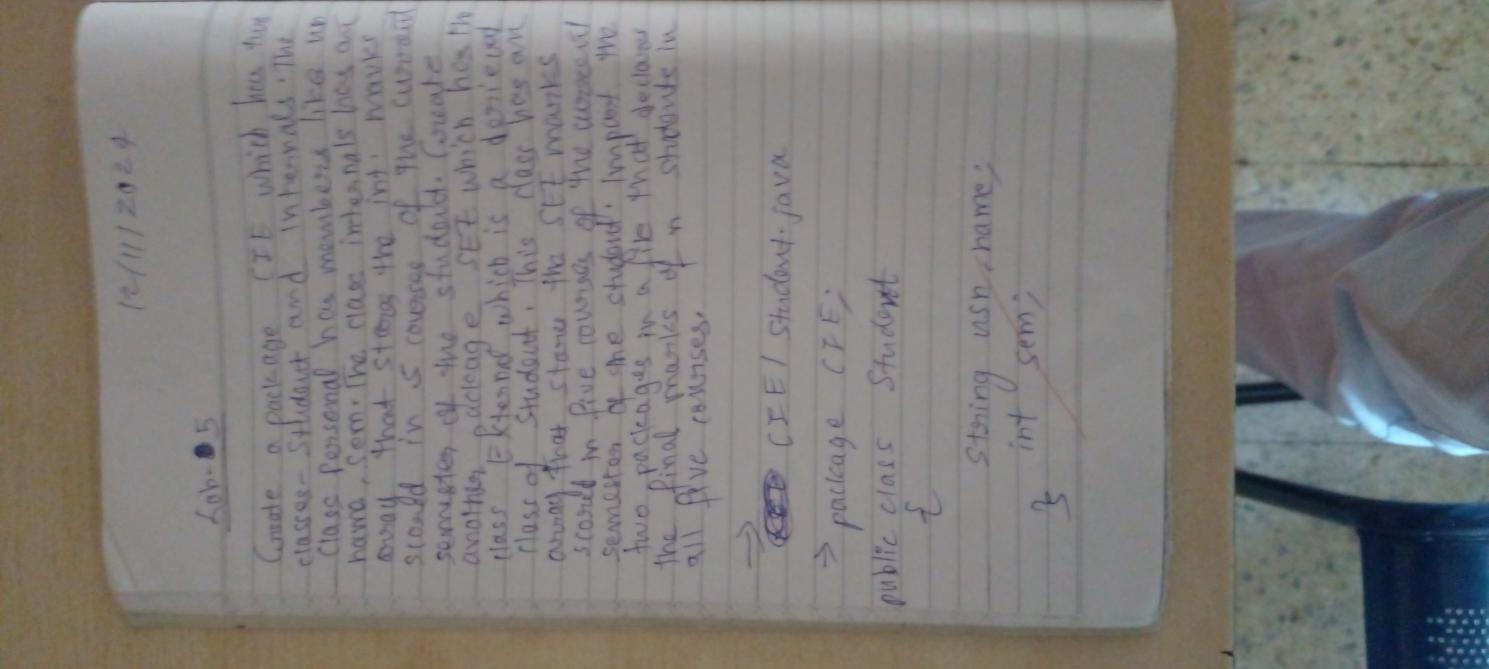 12/11/2024
Lab-05
Create a package CIE which has two
classes- Student and Internals. The
class Personal has members like usn
name, sem. The class internals has an
array that stores the int. marks
scored in 5 courses of the current
semester of the student. Create
another package SEE which has the
class External which is a derieved
class of Student. This class has an
array that stores the SEE marks
scored in five courses of the current
semester of the student. Import the
two packages in a file that declares
the final marks of n students in
all five courses.
⇒ CIE/Student.java
→ package CIE;
public class Student
{
String usn, name;
int sem;
}